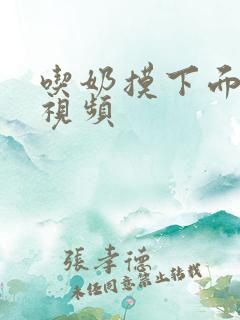 喫奶摸下而
視頻
張孝德
未經同意禁止轉載